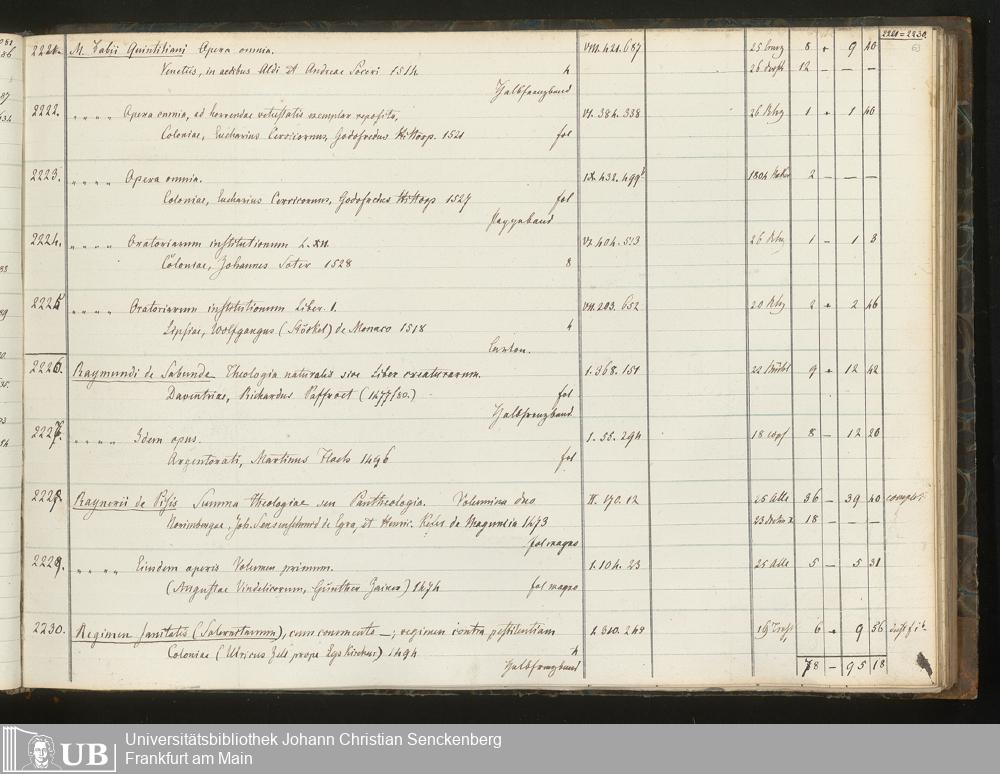 2221=2230
63
2221. M. Fabii Quintiliani Opera omnia. VIII. 421. 687 8 9 40
Venetiis, in aedibus Aldi et Andreae Soceri 1514 4 12 — —
Halbfranzband
2222. " " " " Opera omnia, ad horrendae vetustatis exemplar reposita, VI. 384. 338 26 1 1 40
Coloniae, Eucharius Cervicornus, Godofredus Hittorp. 1521 fol
2223. " " " " Opera omnia. IX. 432. 499 1804 2 — — —
Coloniae, Eucharius Cervicornus, Godofredus Hittorp 1527 fol
Pappband
2224. " " " " Oratoriarum institutionum L. XII. VI. 404. 513 26 1 — 1 3
Coloniae, Johannes Soter 1528 8
2225 " " " " Oratoriarum institutionum Liber. 1. VII. 203. 652 20 2 2 46
Lipsiae, Wolfgangus (Stöckel) de Monaco 1518 4
Carton.
2226. Raymundi de Sabunde Theologia naturalis sive Liber creaturarum. 1. 368. 151 22 9 12 42
Daventriae, Richardus Paffroet (1477/80.) fol
Halbfranzband
2227. " " " " Idem opus. 1. 55. 294 18 8 — 12 20
Argentorati, Martinus Flach 1496 fol
2228. Raynerii de Pisis Summa Theologiae seu Pantheologia. Volumina duo II. 170. 12 25 36 — 39 40
Norimbergae, Joh. Sensenschmid de Egra, et Henric. Kefer de Maguntia 1473 23 18 — — —
fol magno
2229. " " " " Eiusdem operis Volumen primum. 1. 104. 23 25 5 — 5 31
(Augustae Vindelicorum, Günther Zainer) 1474 fol magno
2230. Regimen sanitatis (Salernitanum), cum commento —; regimen contra pestilentiam 1. 310. 249 19 6 9 56
Coloniae (Ulricus Zell prope Lyskirchen) 1494 4
Halbfranzband 78 — 95 18
UB
Universitätsbibliothek Johann Christian Senckenberg
Frankfurt am Main